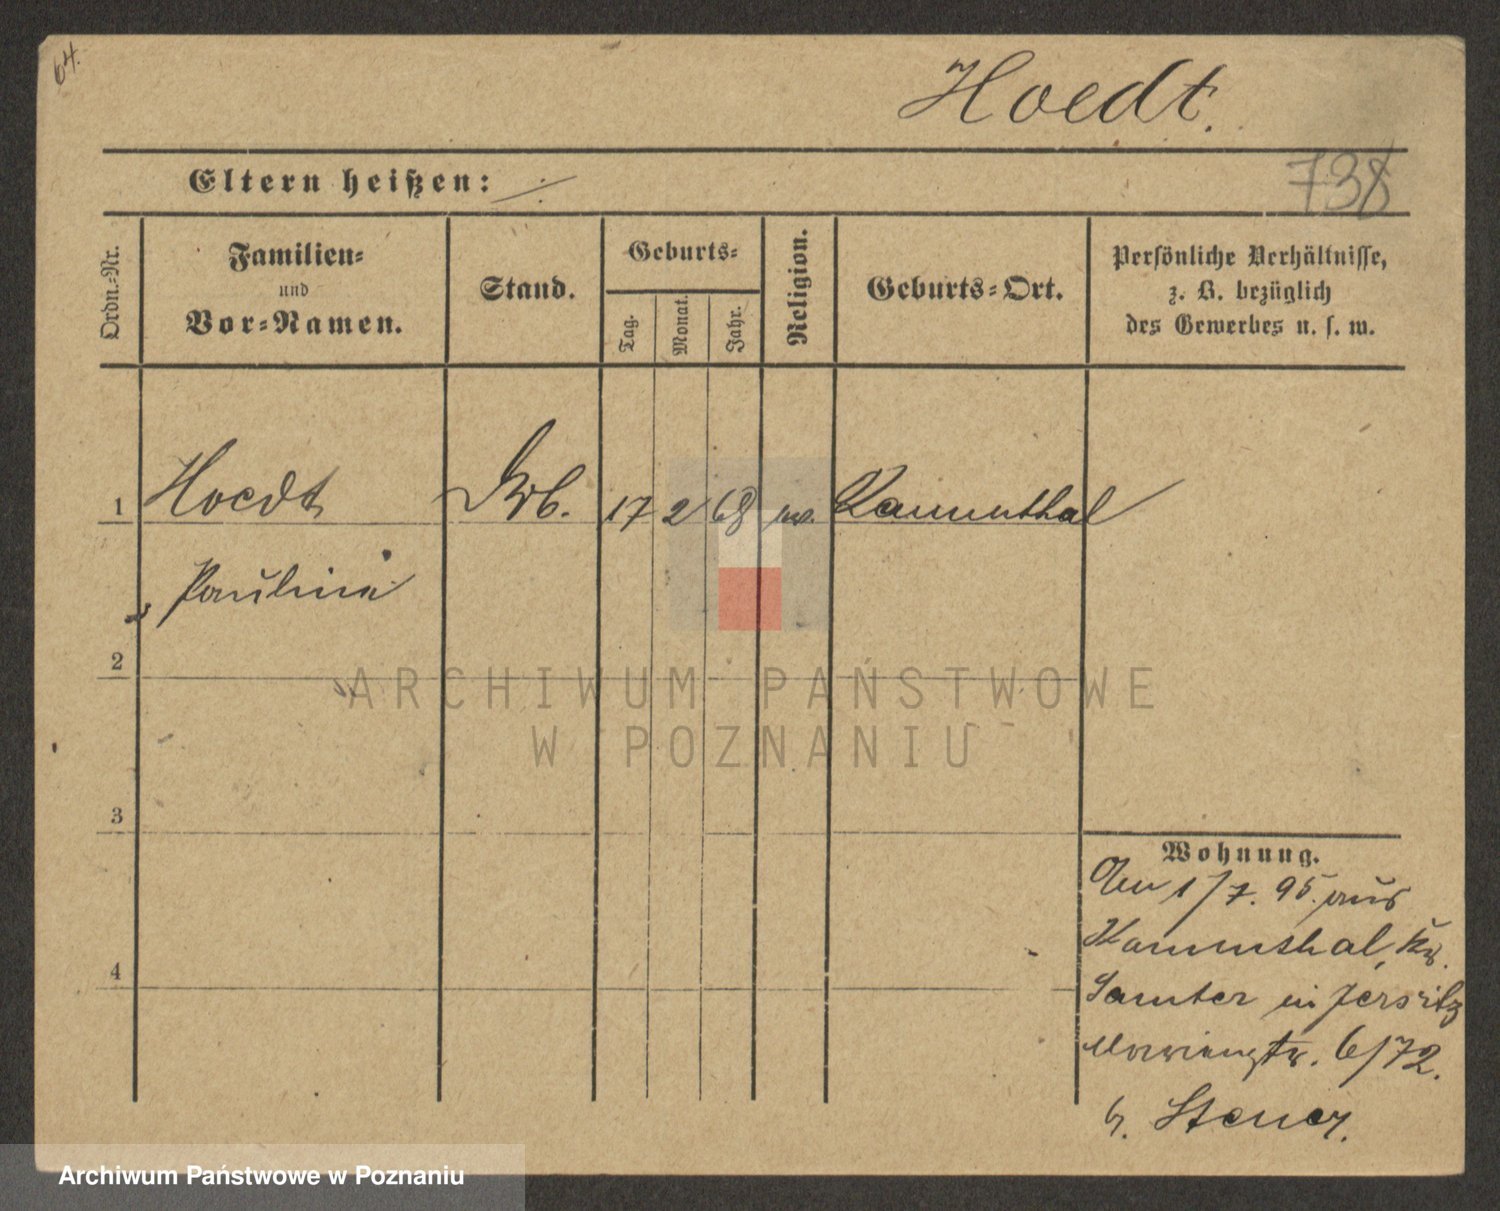 64.
Hoedt.
738
Eltern heißen: ./.
Ordn.-Nr.
Familien-
und
Vor-Namen.
Stand.
Geburts-
Tag.
Monat.
Jahr.
Religion.
Geburts-Ort.
Persönliche Verhältnisse,
z. B. bezüglich
des Gewerbes u. s. w.
1 Hoedt 17 2 68
Pauline
2
3
4
Wohnung.
1/7. 95. aus
Samter in Jersitz
6/72.
b. Steuer.
ARCHIWUM PAŃSTWOWE
W POZNANIU
Archiwum Państwowe w Poznaniu